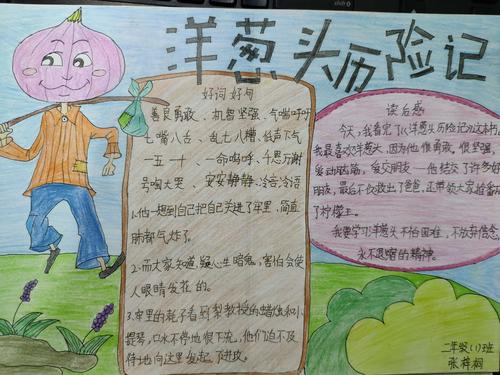 洋葱头历险记
好词好句
善良勇敢、机智坚强、气嘟呼呼
七嘴八舌、乱七八糟、低声下气
一五一十、一命呜呼、千恩万谢
号啕大哭、安安静静、冷言冷语
1.他一想到自己把自己关进了牢里，简直
肺都气炸了。
2.而大家知道，疑心生暗鬼，害怕会使
人眼睛发花的。
3.牢里的耗子看到梨教授的蜡烛和小
提琴，口水不停地很下流，他们迫不及
待地向这里发起了进攻。
读后感
今天，我看完了《洋葱头历险记》这本书，
我最喜欢洋葱头，因为他很勇敢、很坚强、
爱动脑筋、爱交朋友——他结交了许多好
朋友，最后不仅救出了爸爸，还带领大家推翻
了柠檬王。
我要学习洋葱头不怕困难、不放弃信念、
永不退缩的精神。
二年级(1)班
张梓桐